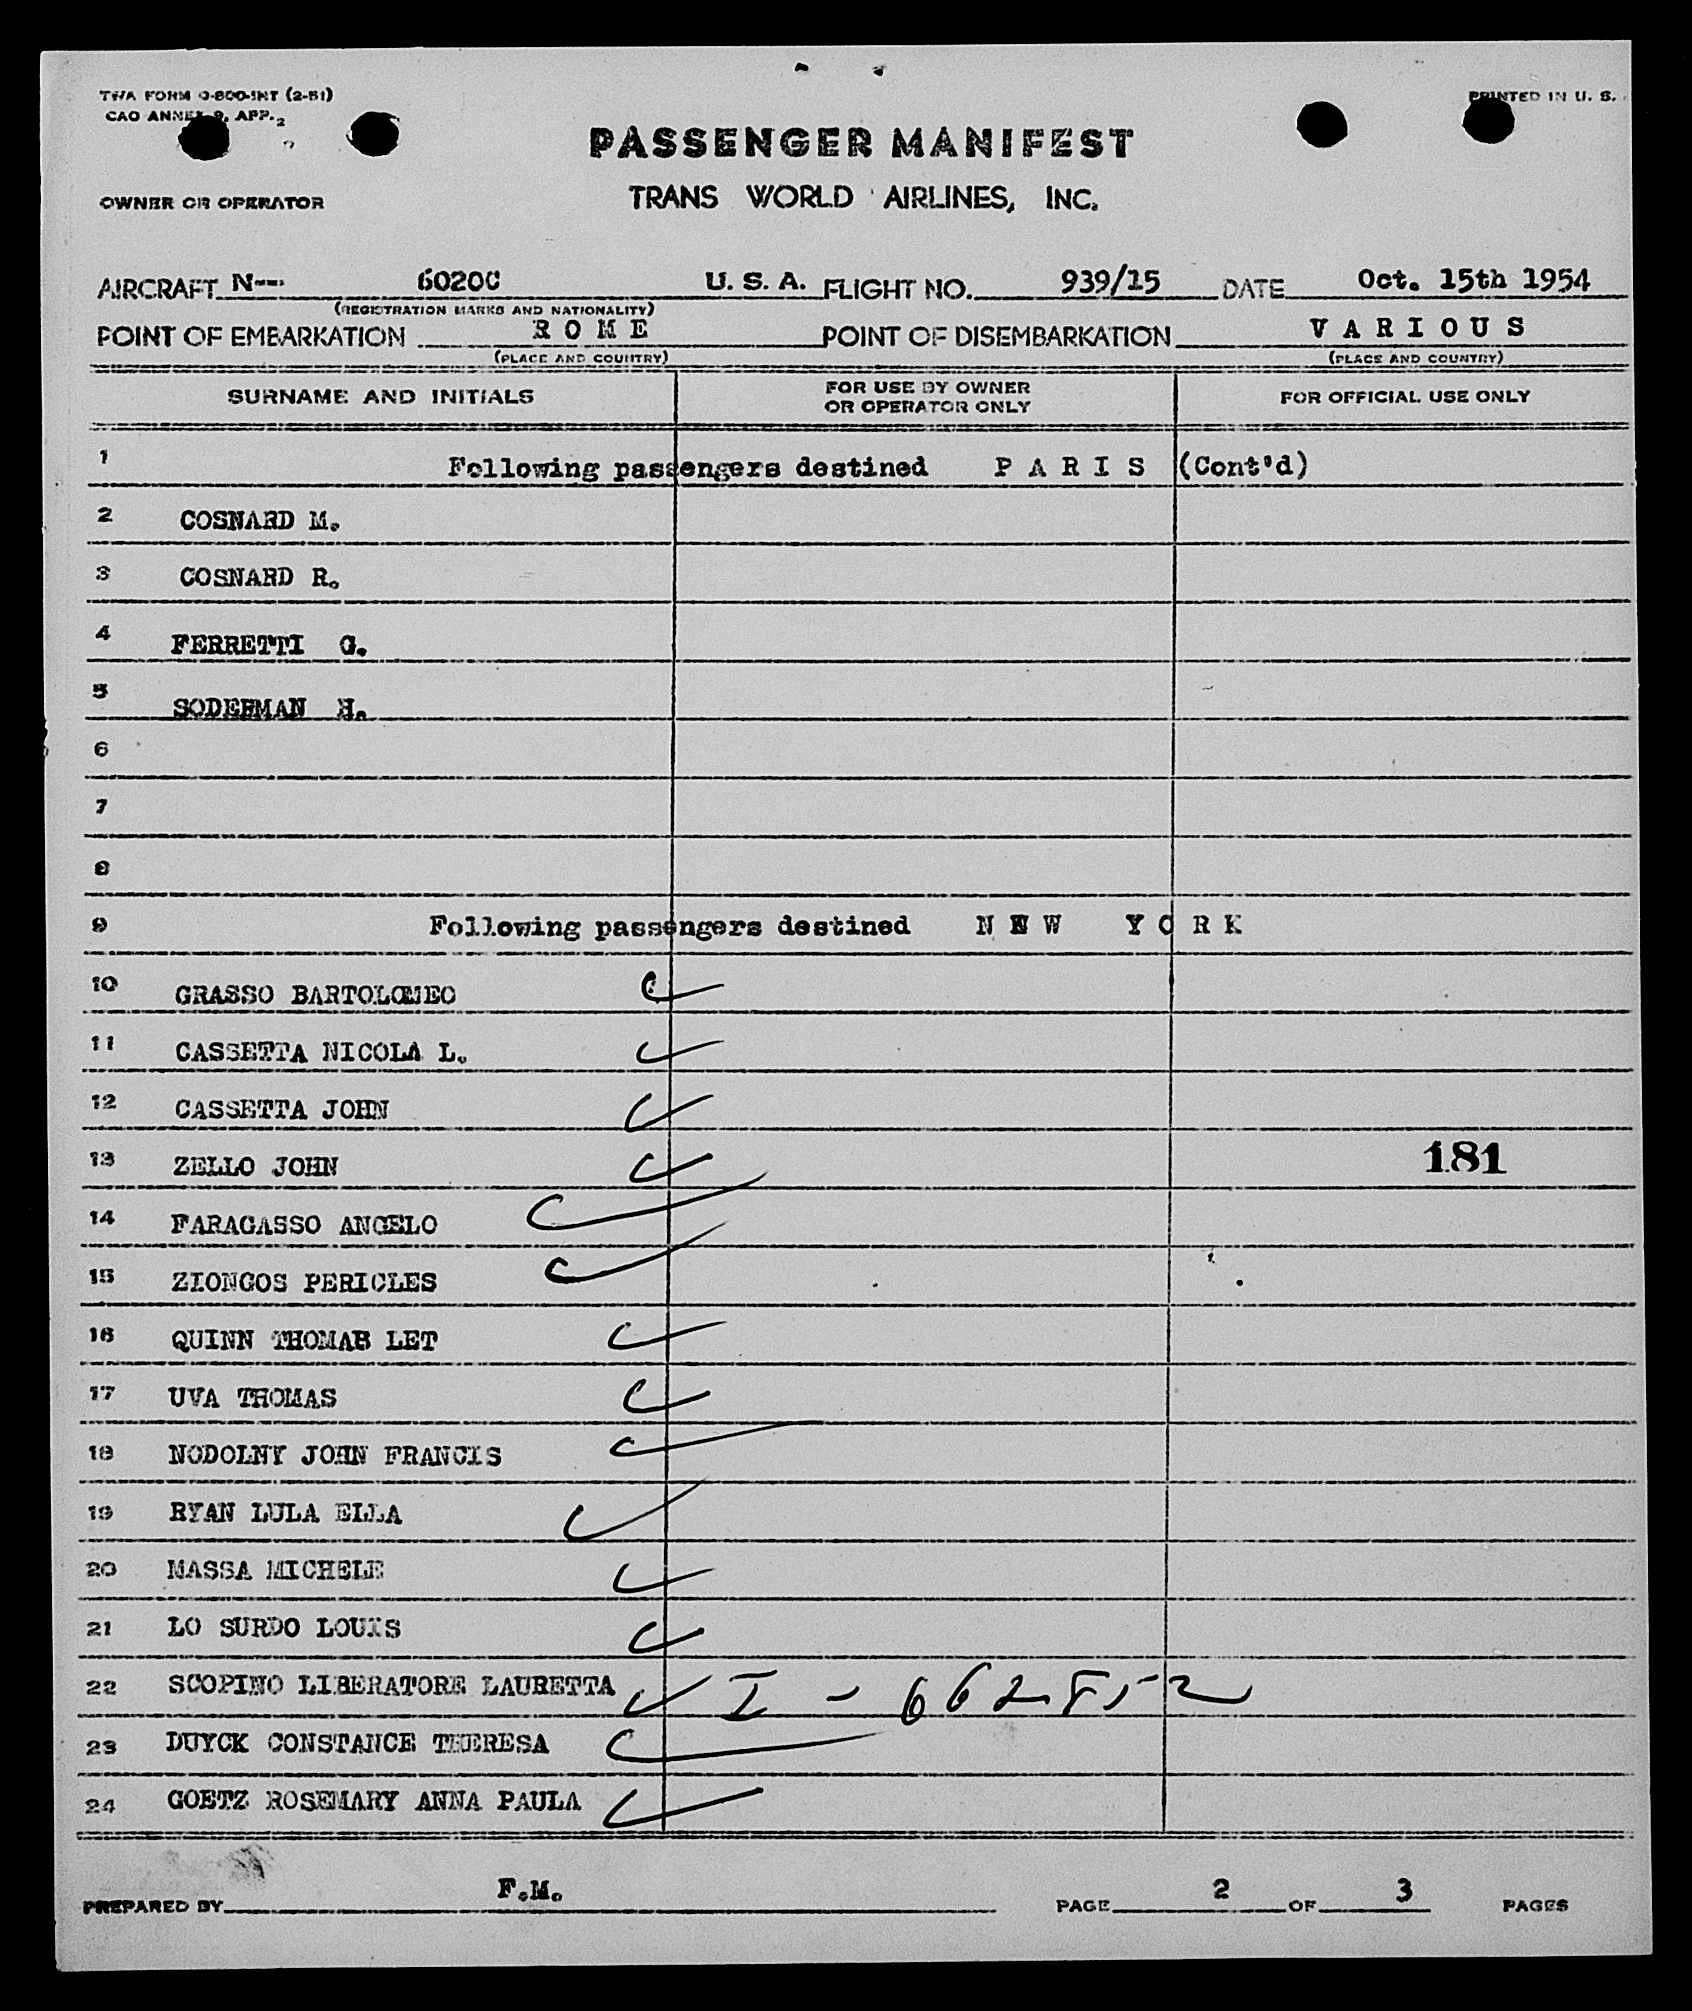 TWA FORM O-800-INT (2-51)
PRINTED IN U. S.
CAO ANNEX 9, APP. 2
PASSENGER MANIFEST
OWNER OR OPERATOR
TRANS WORLD AIRLINES, INC.
AIRCRAFT N-- 6020C U. S. A. FLIGHT NO. 939/15 DATE Oct. 15th 1954
(REGISTRATION MARKS AND NATIONALITY)
POINT OF EMBARKATION R O M E POINT OF DISEMBARKATION V A R I O U S
(PLACE AND COUNTRY) (PLACE AND COUNTRY)
SURNAME AND INITIALS FOR USE BY OWNER OR OPERATOR ONLY FOR OFFICIAL USE ONLY
1 Following passengers destined P A R I S (Cont'd)
2 COSNARD M.
3 COSNARD R.
4 FERRETTI G.
5 SODERMAN H.
6
7
8
9 Following passengers destined N E W Y O R K
10 GRASSO BARTOLOMEO
11 CASSETTA NICOLA L.
12 CASSETTA JOHN
13 ZELLO JOHN 181
14 FARAGASSO ANGELO
15 ZIONGOS PERICLES
16 QUINN THOMAB LET
17 UVA THOMAS
18 NODOLNY JOHN FRANCIS
19 RYAN LULA ELLA
20 MASSA MICHELE
21 LO SURDO LOUIS
22 SCOPINO LIBERATORE LAURETTA I - 662852
23 DUYCK CONSTANCE THERESA
24 GOETZ ROSEMARY ANNA PAULA
PREPARED BY F.M. PAGE 2 OF 3 PAGES